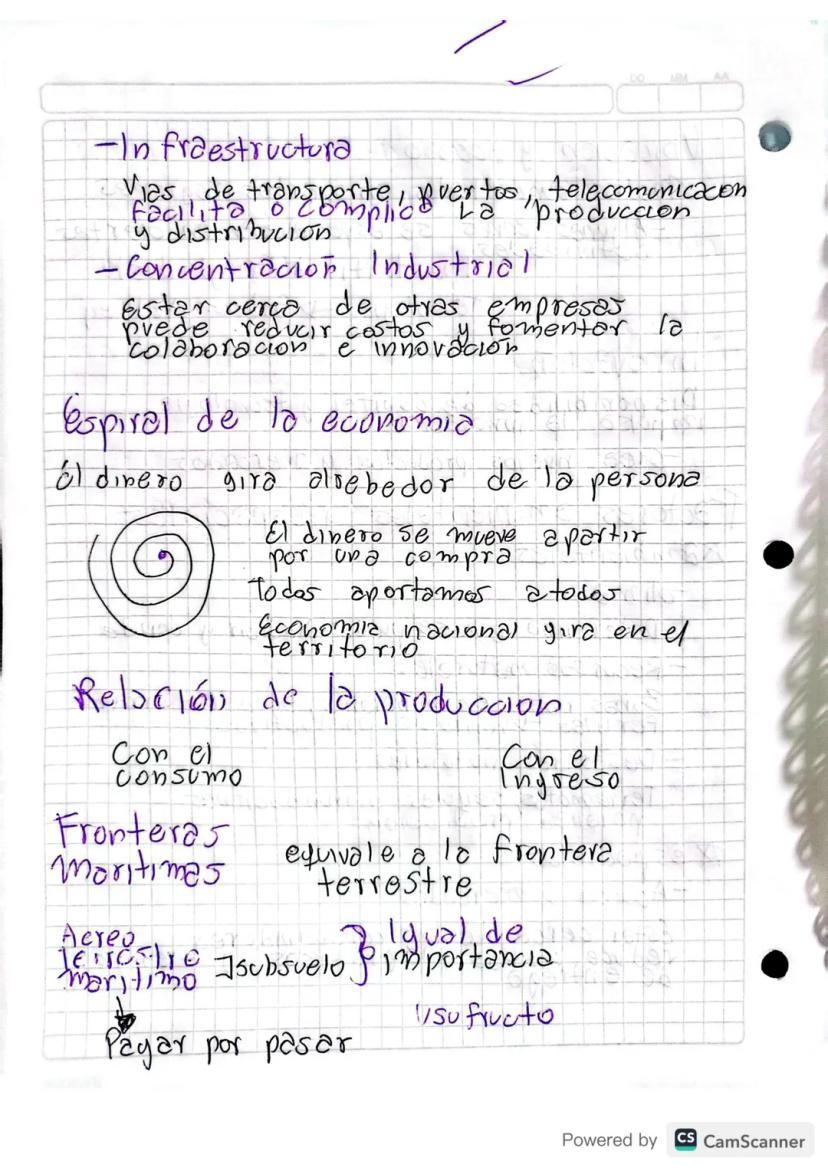 DO MM AA
-Infraestructura
Vias de transporte, puertos, telecomunicacion
facilita o complica La produccion
y distribucion
- Concentración Industrial
Estar cerca de otras empresas
puede reducir costos y fomentar la
colaboracion e innovación
Espiral de la economia
El dinero gira alrebedor de la persona
El dinero se mueve apartir
por una compra
Todos aportamos a todos
Economia nacional gira en el
territorio
Relación de la produccion
Con el
consumo
Con el
Ingreso
Fronteras
Maritimas
equivale a la frontera
terrestre
Aereo
Terrestre
maritimo
subsuelo
Igual de
importancia
Usufructo
Pagar por pasar
Powered by CS CamScanner